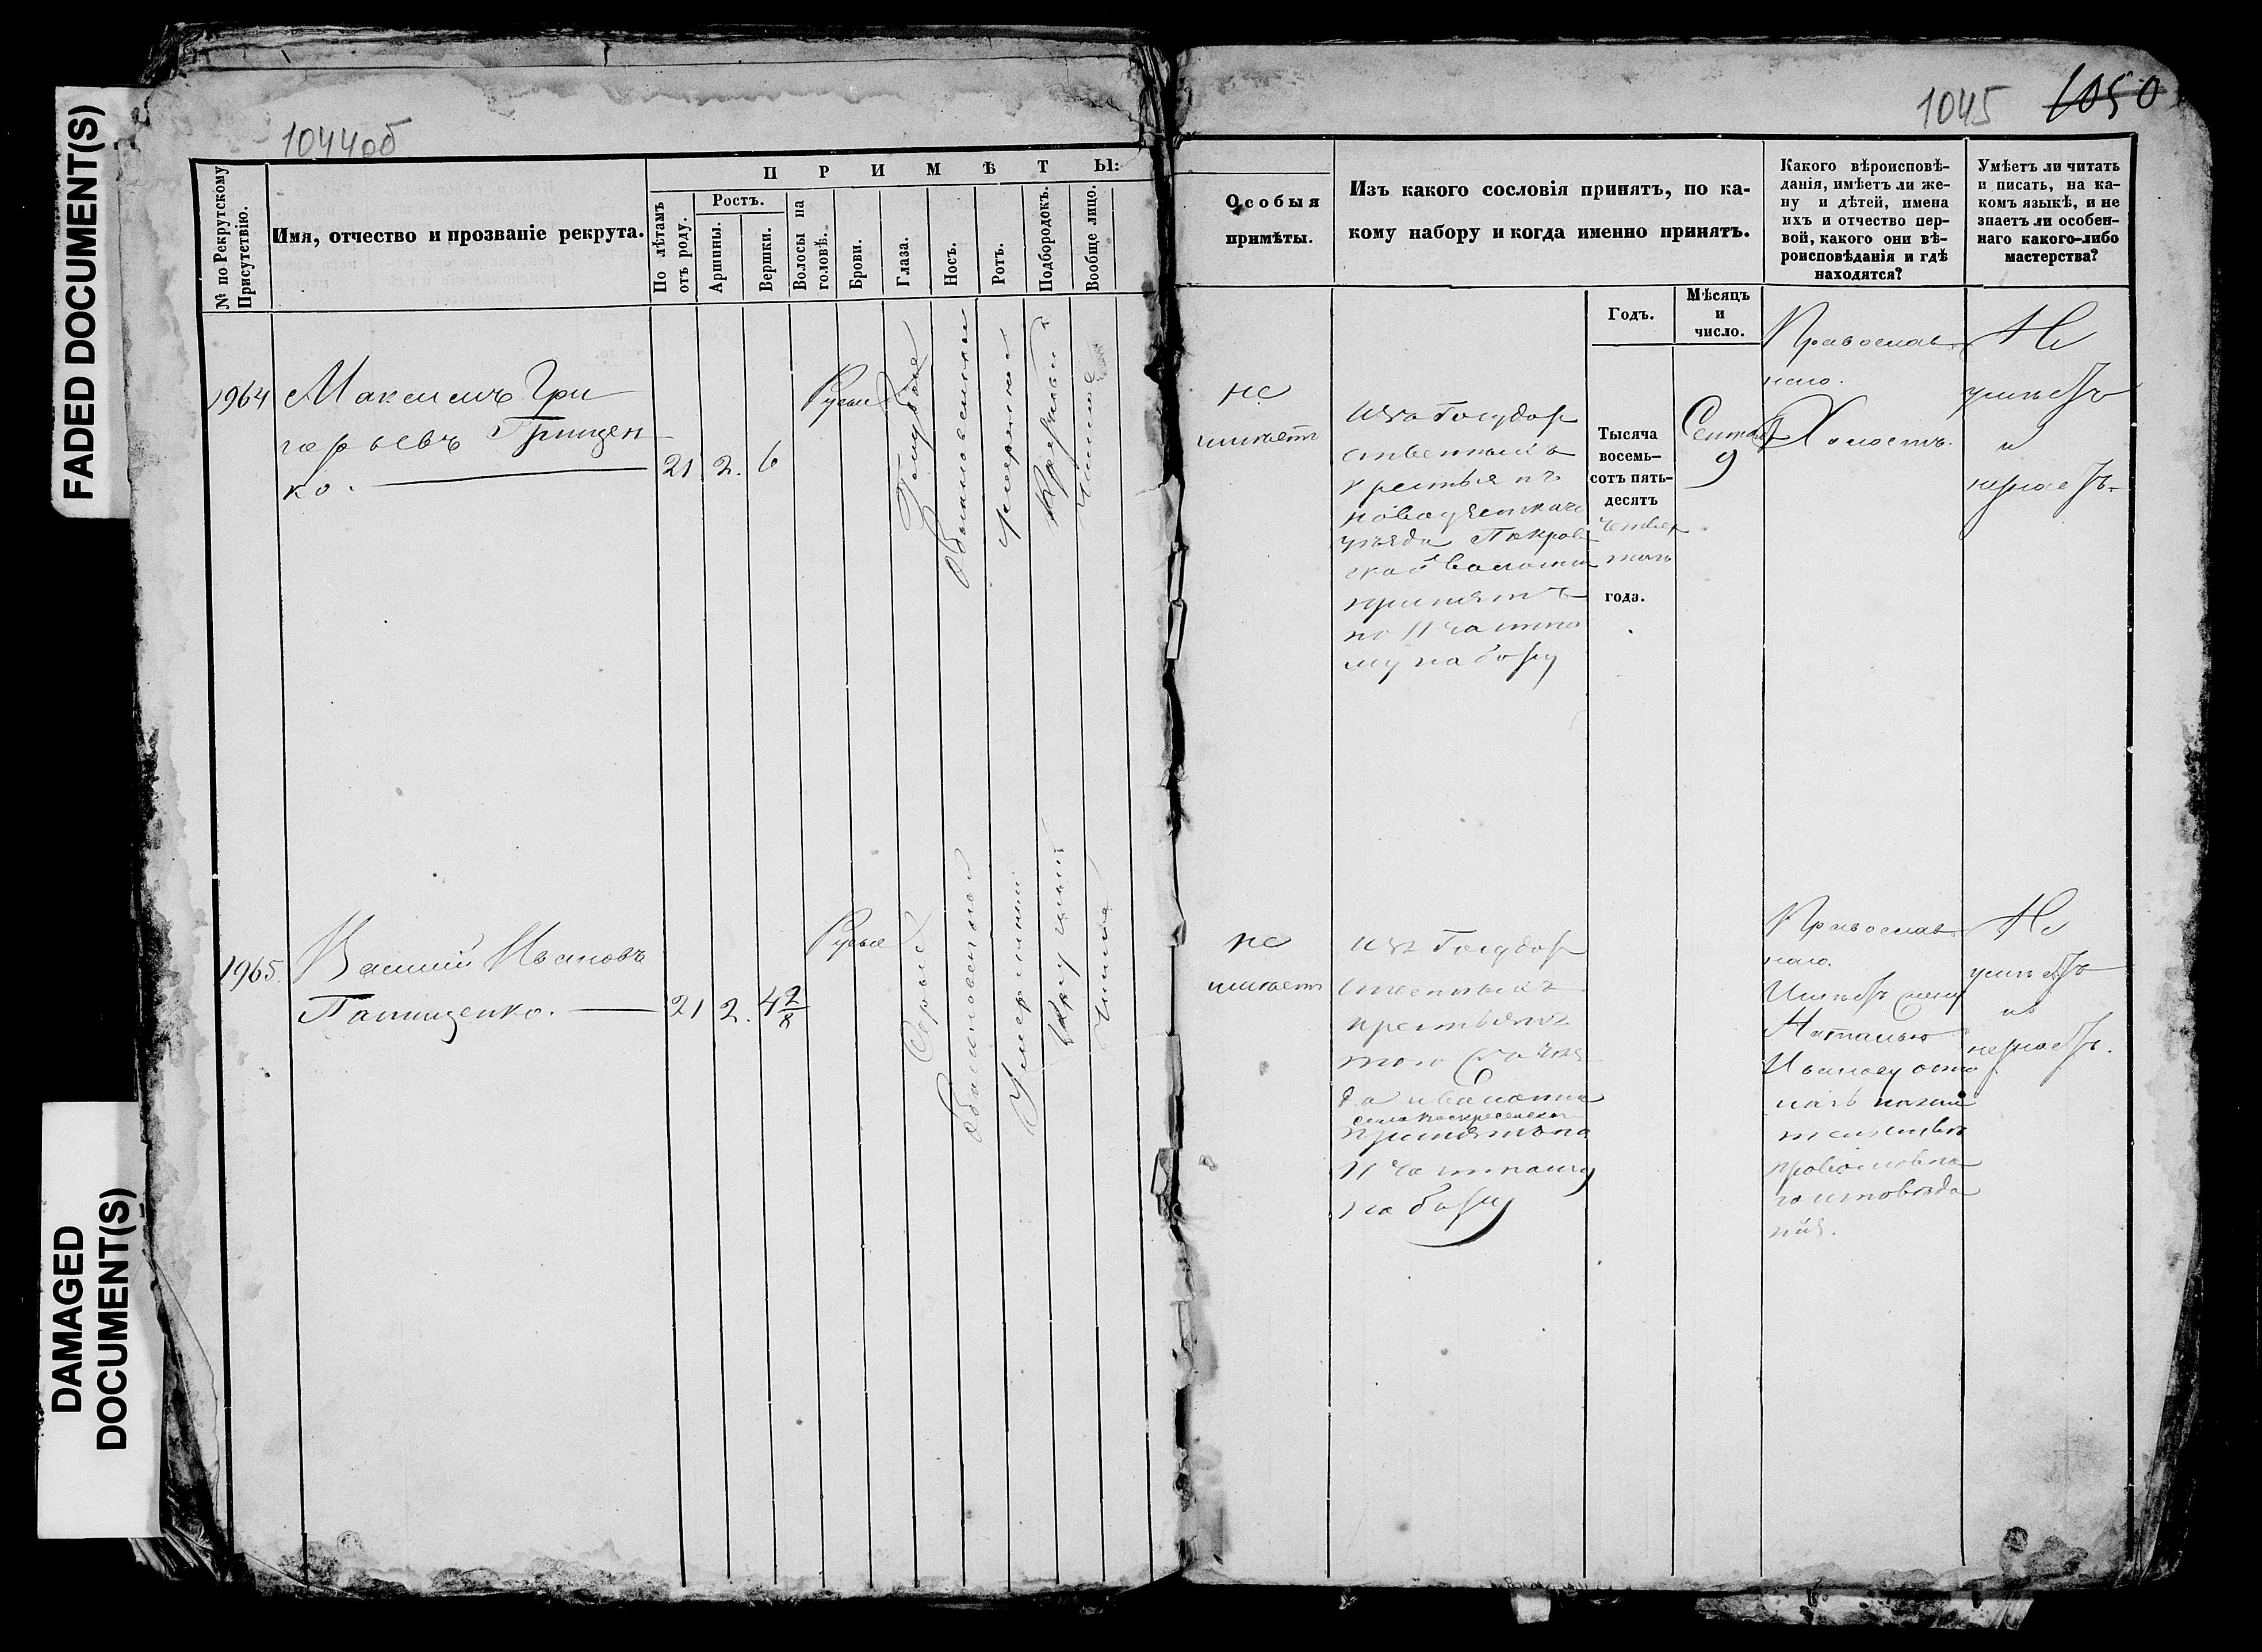 FADED DOCUMENT(S)
DAMAGED
DOCUMENT(S)
1044об
№ по Рекрутскому
Присутствію.
Имя, отчество и прозваніе рекрута.
ПРИМѢТЫ:
По лѣтамъ
отъ роду.
Ростъ.
Аршины.
Вершки.
Волосы на
головѣ.
Брови.
Глаза.
Носъ.
Ротъ.
Подбородокъ.
Вообще лицо.
1964
Максимъ Гри
горьевъ Грищен
ко.
21
2.
6
Русые
Голубые
умеренный
Круглый
Чистое
1965.
Василий Ивановъ
Панищенко.
21
2.
4 2/8
Русые
Серые
Обыкновенный
Умеренный
Круглый
Чистое
1045
1050
Особыя
примѣты.
Изъ какого сословія принятъ, по ка-
кому набору и когда именно принятъ.
Какого вѣроисповѣ-
данія, имѣетъ ли же-
ну и дѣтей, имена
ихъ и отчество пер-
вой, какого они вѣ-
роисповѣданія и гдѣ
находятся?
Умѣетъ ли читать
и писать, на ка-
комъ языкѣ, и не
знаетъ ли особен-
наго какого-либо
мастерства?
Годъ.
Мѣсяцъ
и
число.
не
имѣетъ
изъ Государ
ственныхъ
крестьянъ
уѣзда Покров
ской волости
принятъ
по 11 частно
му набору
Тысяча
восемь-
сотъ пять-
десятъ
четвер
таго
года.
9
Православ
наго.
Холостъ.
Не
умѣетъ
и
не
имѣетъ
изъ Государ
ственныхъ
крестьянъ
того
да и волости
села Воскресенскаго
принятъ по
11 частному
набору
Православ
наго.
Имѣетъ жену
Наталью
Иванову
православна
го исповѣда
нія.
Не
умѣетъ